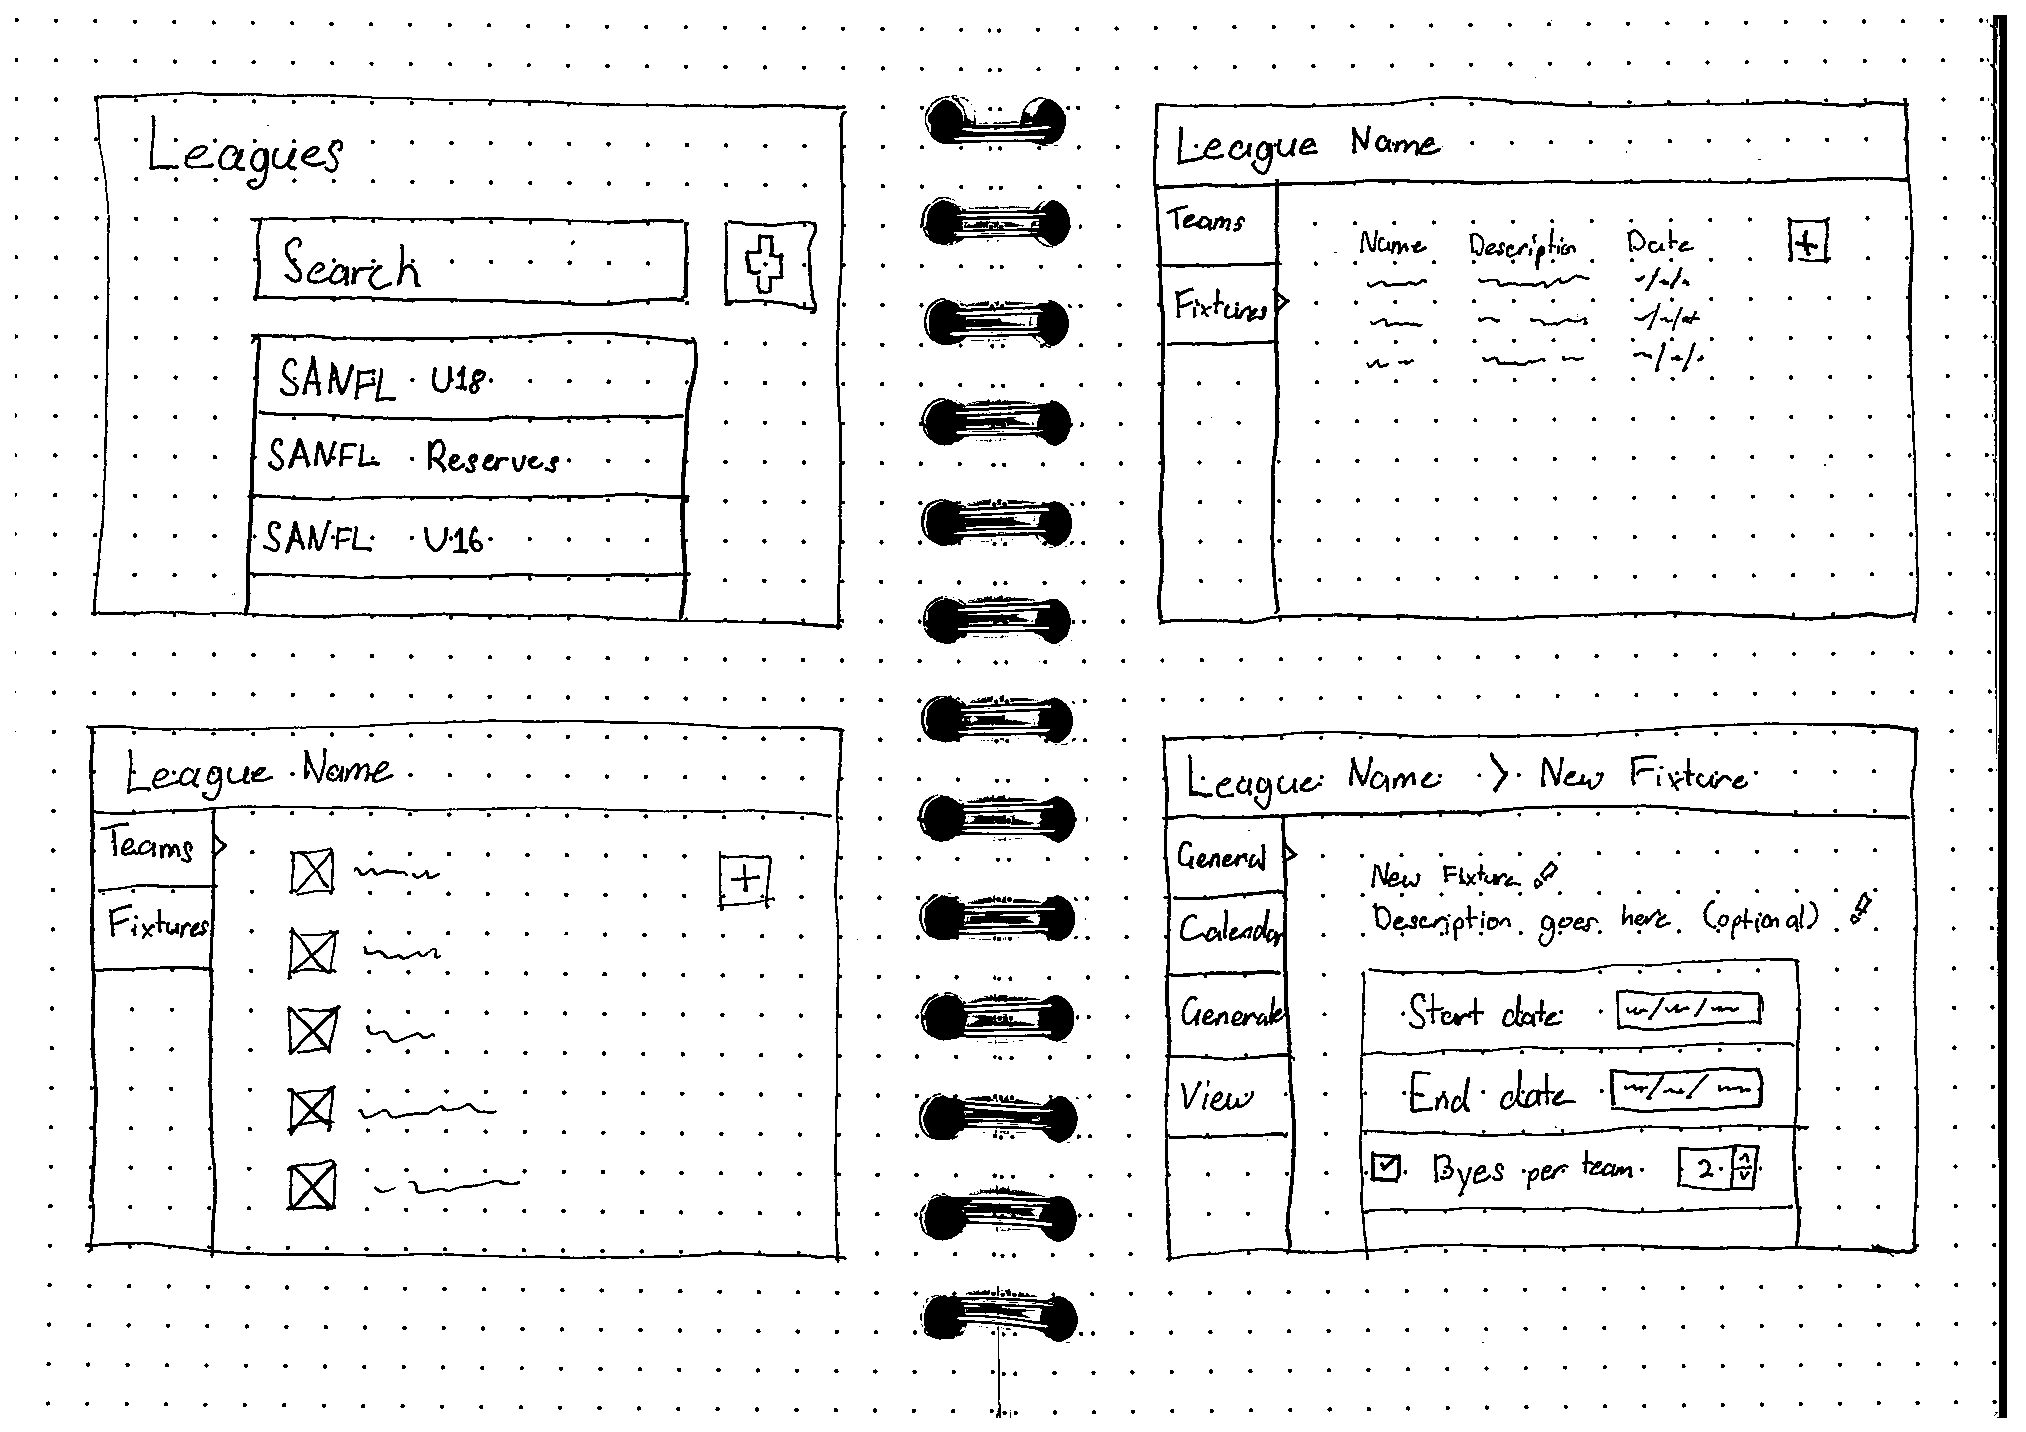 Leagues
Search
SANFL U18
SANFL Reserves
SANFL U16
League Name
Teams
Fixtures
League Name
Teams
Fixtures
Name Description Date
League Name > New Fixture
General
Calendar
Generate
View
New Fixture
Description goes here (optional)
Start date
End date
Byes per team 2